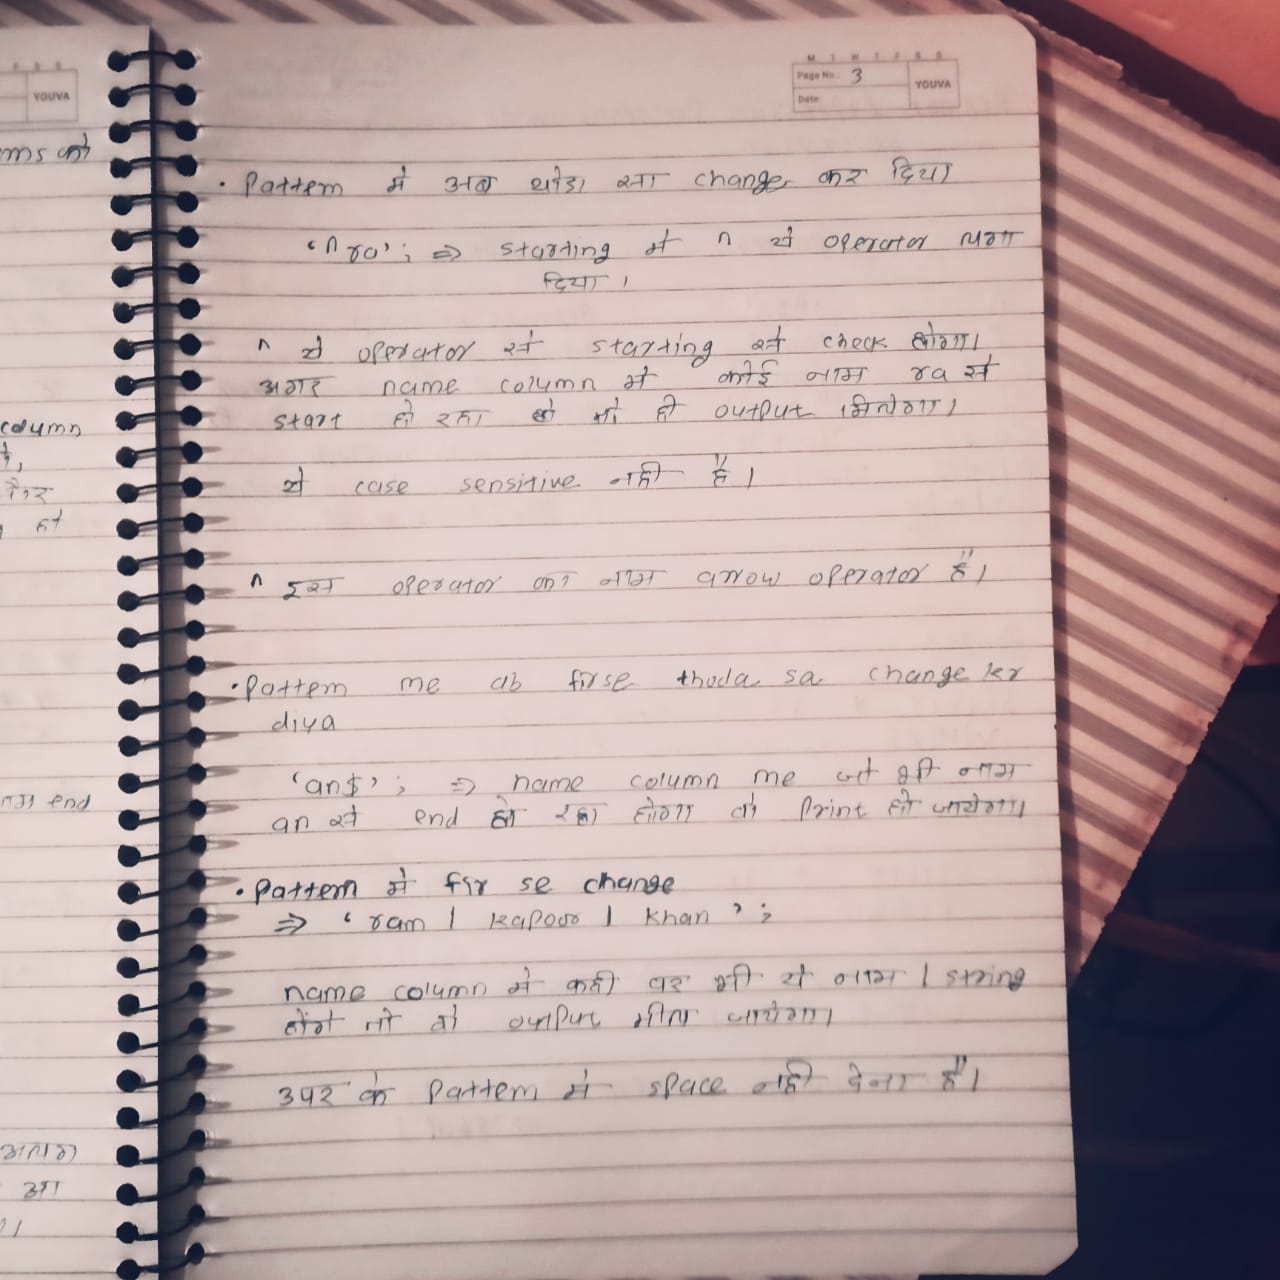 F S S
YOUVA
ms को
column
end
M T W T F S S
Page No.: 3
YOUVA
Date:
• Pattern में अब थोडा सा change कर दिया
'^ra'; ⇒ starting में ^ ये operator लगा
दिया ।
^ ये operator से starting से check होगा।
अगर name column में कोई नाम ra से
start हो रहा हो तो ही output मिलेगा।
ये case sensitive नही है।
^ इस operator का नाम arrow operator है।
• Pattern me ab firse thoda sa change kr
diya
'an$'; ⇒ name column me जो भी नाम
an से end हो रहा होगा वो Print हो जायेगा।
• Pattern में fir se change
⇒ 'ram | kapoor | khan';
name column में कही पर भी ये नाम / string
होंगे तो वो output मील जायेगा।
उपर के Pattern में space नही देना है।